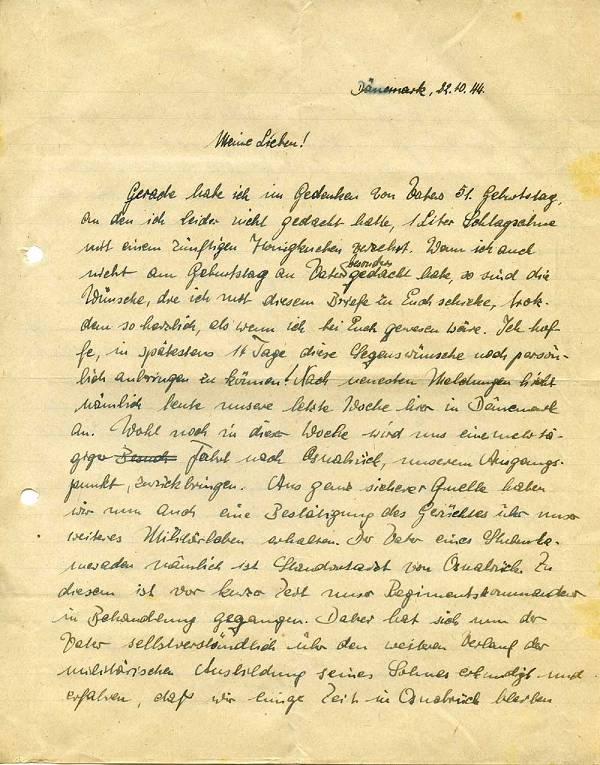 Dänemark, 22.10.44.
Meine Lieben!
Gerade habe ich im Gedenken von Vaters 51. Geburtstag,
an den ich leider nicht gedacht hatte, 1 Liter Schlagsahne
mit einem zünftigen Honigkuchen verzehrt. Wenn ich auch
nicht am Geburtstag an Vater besonders gedacht habe, so sind die
Wünsche, die ich mit diesem Briefe zu Euch schicke, trotz-
dem so herzlich, als wenn ich bei Euch gewesen wäre. Ich hof-
fe, in spätestens 14 Tage diese Segenswünsche noch persön-
lich anbringen zu können! Nach neuesten Meldungen bricht
nämlich heute unsere letzte Woche hier in Dänemark
an. Wohl noch in dieser Woche wird uns eine mehrtä-
gige Besuch Fahrt nach Osnabrück, unserem Ausgangs-
punkt, zurückbringen. Aus ganz sicherer Quelle haben
wir nun auch eine Bestätigung des Gerüchtes über unser
weiteres Militärleben erhalten. Der Vater eines Stubenka-
meraden nämlich ist Standortarzt von Osnabrück. Zu
diesem ist vor kurzer Zeit unser Regimentskommandeur
in Behandlung gegangen. Daher hat sich nun der
Vater selbstverständlich über den weiteren Verlauf der
militärischen Ausbildung seines Sohnes erkundigt und
erfahren, daß wir einige Zeit in Osnabrück bleiben